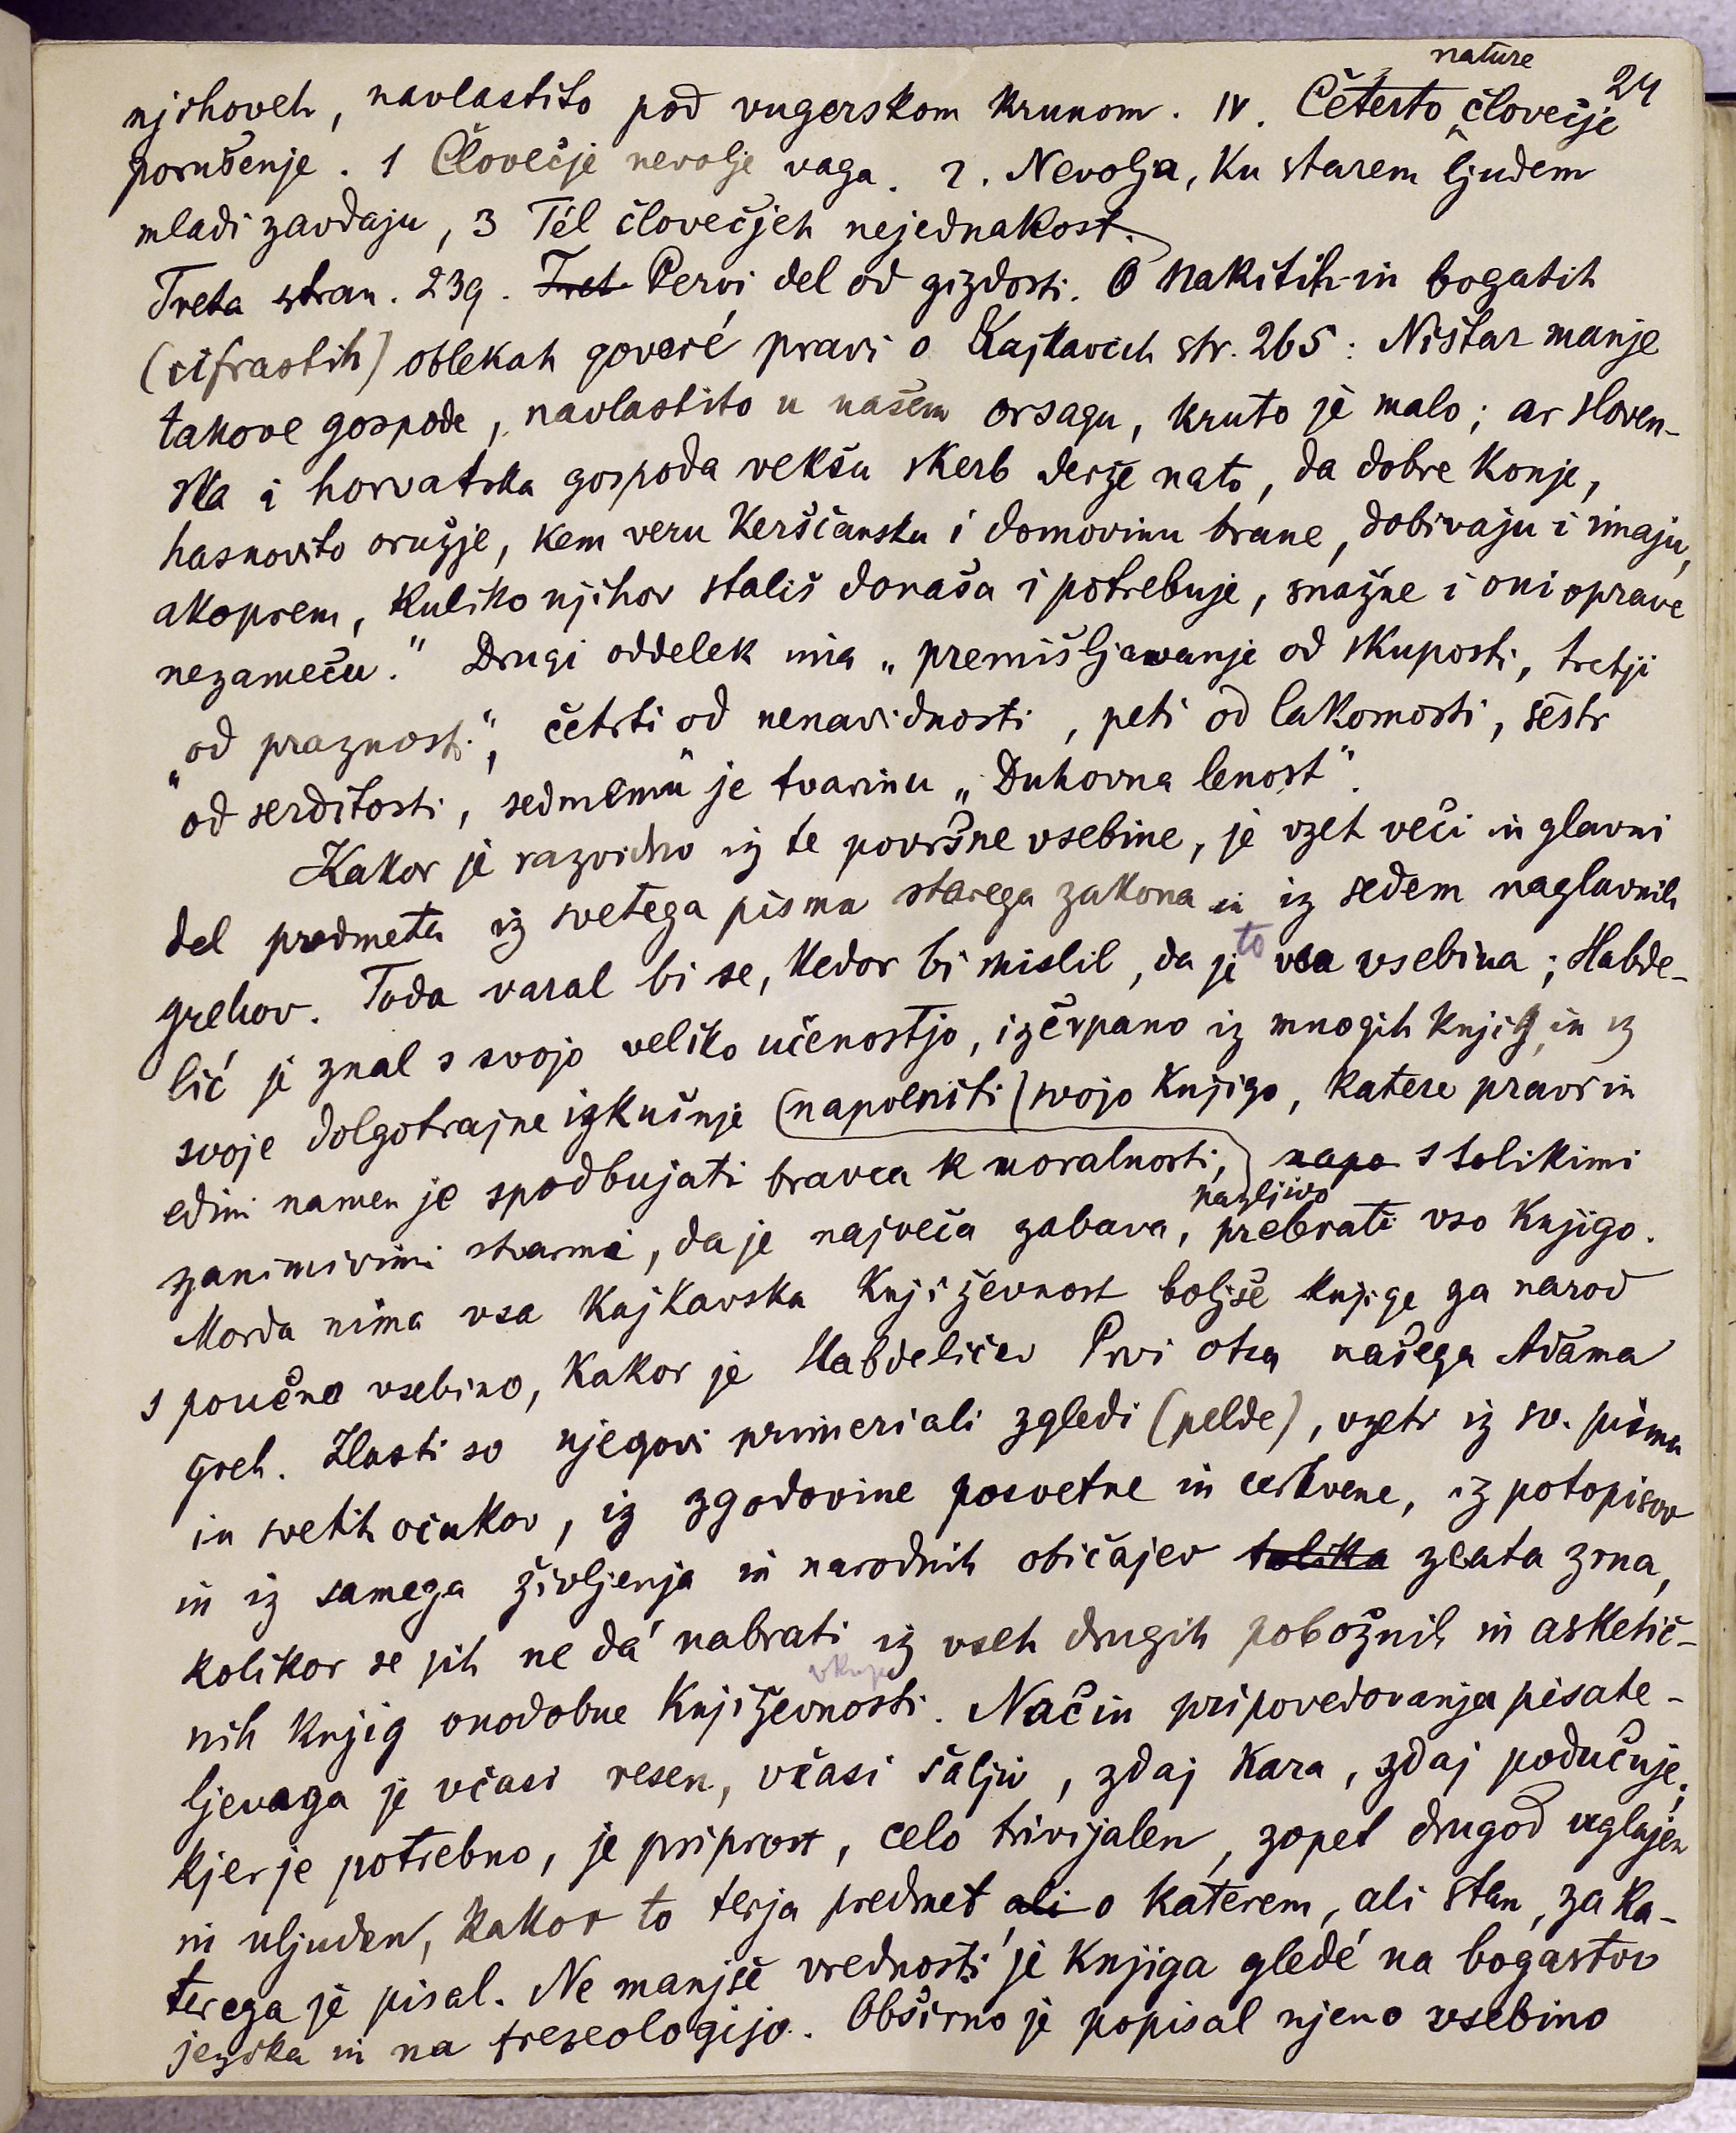 24
njihoveh, navlastito pod vugerskom krunom. IV. Četerto nature človečje
porušenje. 1 Človečje nevolje vaga. 2. Nevolja, ku starem ljudem
mladi zavdaju, 3 Tél človečjeh nejednakost.
Treta stran. 239. Tret Pervi del od gizdosti. O nakitih in bogatih
(cifrastih) oblekah goveré pravi o Kajkavcih str. 265: Ništar manje
takove gospode, navlastito u našem orsagu, kruto je malo; ar sloven-
ska i horvatska gospoda vekšu skerb derže na to, da dobre konje,
hasnovito oružje, kem veru kerščansku i domovinu brane, dobivaju i imaju,
akoprem, kuliko njihov stališ donaša i potrebuje, snažne i oni oprave
nezameču." Drugi oddelek ima „premišljavanje od skuposti, tretji
„od praznosti", četrti od nenavidnosti, peti od lakomosti, šesti
od serditosti, sedmemu je tvarinu „Duhovna lenost".
Kakor je razvidno iz te površne vsebine, je vzet veči in glavni
del predmeta iz svetega pisma starega zakona in iz sedem naglavnih
grehov. Toda varal bi se, kedor bi mislil, da je to vsa vsebina; Habde-
lić je znal s svojo veliko učenostjo, izčrpano iz mnogih knjig, in iz
svoje dolgotrajne izkušnje (napolniti) svojo knjigo, katere pravi in
edini namen je spodbujati bravca k moralnosti, napo s tolikimi
zanimivimi stvarmi, da je največa zabava, nazljivo prebrati vso knjigo.
Morda nima vsa kajkavska književnost boljše knjige za narod
s poučno vsebino, kakor je Habdeličev Prvi otca našega Adama
greh. Zlasti so njegovi primeri ali zgledi (pelde), vzeti iz sv. pisma
in svetih očakov, iz zgodovine posvetne in cerkvene, iz potopisov
in iz samega življenja in narodnih običajev tolika zlata zrna,
kolikor se jih ne dá nabrati iz vseh drugih pobožnih in asketič-
nih knjig onodobne vkup književnosti. Način pripovedovanja pisate-
ljevaga je včasi resen, včasi šaljiv, zdaj kara, zdaj podučuje;
kjer je potrebno, je priprost, celo trivijalen, zopet drugod uglajen
in uljuden, kakor to terja predmet ali o katerem, ali stan, za ka-
terega je pisal. Ne manjše vrednosti je knjiga gledé na bogastvo
jezika in na frezeologijo. Obširno je popisal njeno vsebino